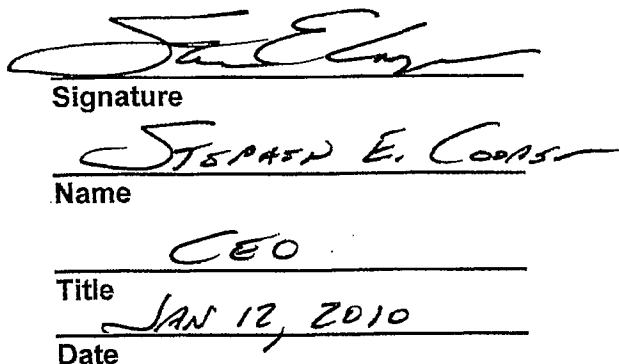 Signature
Stephen E. Cooper
Name
CEO
Title
Jan 12, 2010
Date